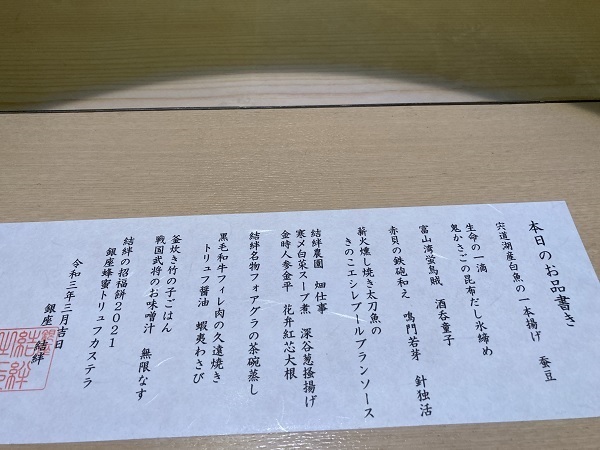 本日のお品書き
宍道湖産白魚の一本揚げ　蚕豆
生命の一滴
鬼かさごの昆布だし氷締め
富山湾蛍烏賊　酒呑童子
赤貝の鉄砲和え　鳴門若芽　針独活
薪火燻し焼き太刀魚の
きのこエシレブールブランソース
結絆農園　畑仕事
寒〆白菜スープ煮　深谷葱掻揚げ
金時人参金平　花弁紅芯大根
結絆名物フォアグラの茶碗蒸し
黒毛和牛フィレ肉の久遠焼き
トリュフ醤油　蝦夷わさび
釜炊き竹の子ごはん
戦国武将のお味噌汁　無限なす
結絆の招福餅2021
銀座蜂蜜トリュフカステラ
令和三年三月吉日
銀座　結絆